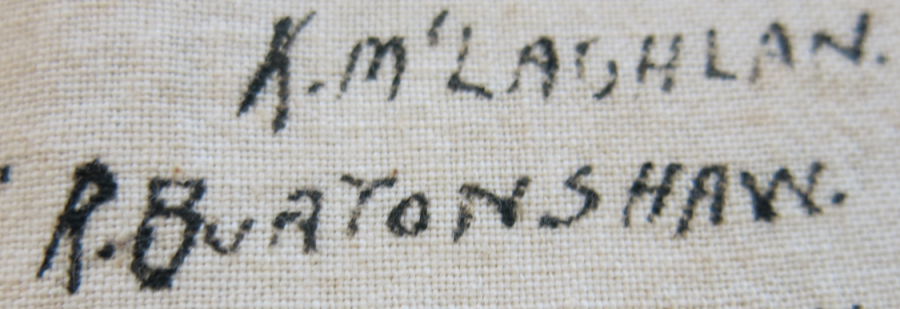 K. M'LAGHLAN.
R. BURTONSHAW.